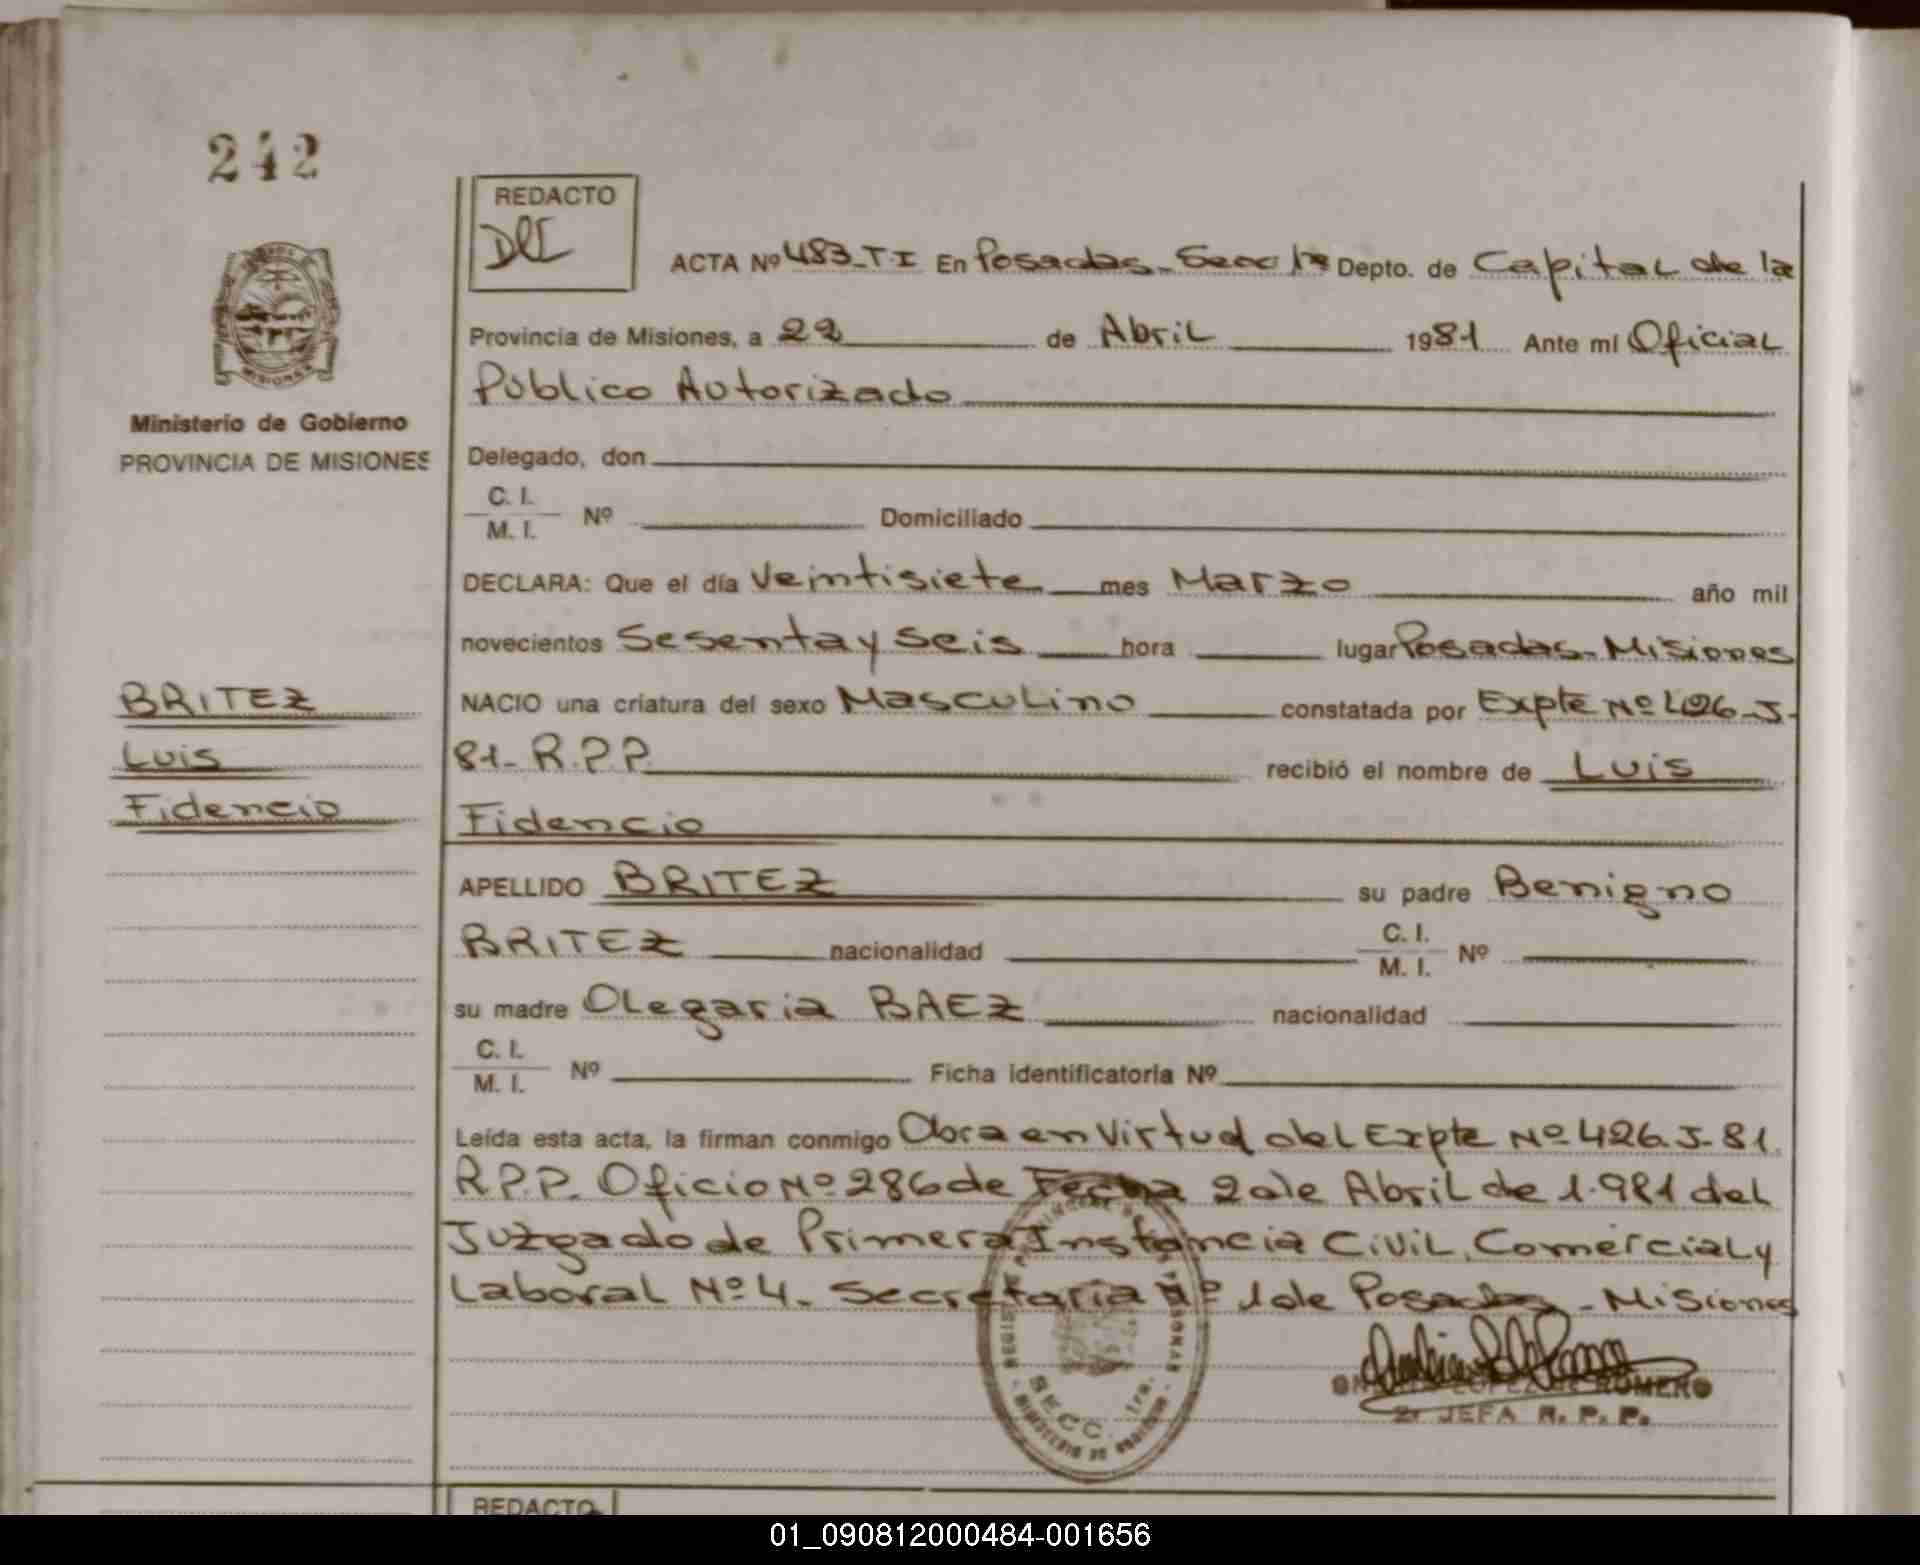 242
REDACTO
ACTA Nº 483-T-I En Posadas - Secc 1ª Depto. de Capital de la
Provincia de Misiones, a 22 de Abril 1981 Ante mí Oficial
Público Autorizado
MISIONES
Ministerio de Gobierno
PROVINCIA DE MISIONES
Delegado, don
C. I.
M. I. Nº Domiciliado
DECLARA: Que el día Veintisiete mes Marzo año mil
novecientos Sesenta y Seis hora lugar Posadas - Misiones
BRITEZ
Luis
Fidencio
NACIO una criatura del sexo Masculino constatada por Expte Nº 426-J-
81- R.P.P. recibió el nombre de Luis
Fidencio
APELLIDO BRITEZ su padre Benigno
BRITEZ nacionalidad C. I. M. I. Nº
su madre Olegaria BAEZ nacionalidad
C. I.
M. I. Nº Ficha identificatoria Nº
Leída esta acta, la firman conmigo Obra en Virtud del Expte Nº 426-J-81.
R.P.P. Oficio Nº 286 de Fecha 2 de Abril de 1.981 del
Juzgado de Primera Instancia Civil, Comercial y
Laboral Nº 4. Secretaria Nº 1 de Posadas - Misiones
SECC. 1ra.
LOPEZ DE ROMERO
JEFA R. P. P.
REDACTO
01_090812000484-001656